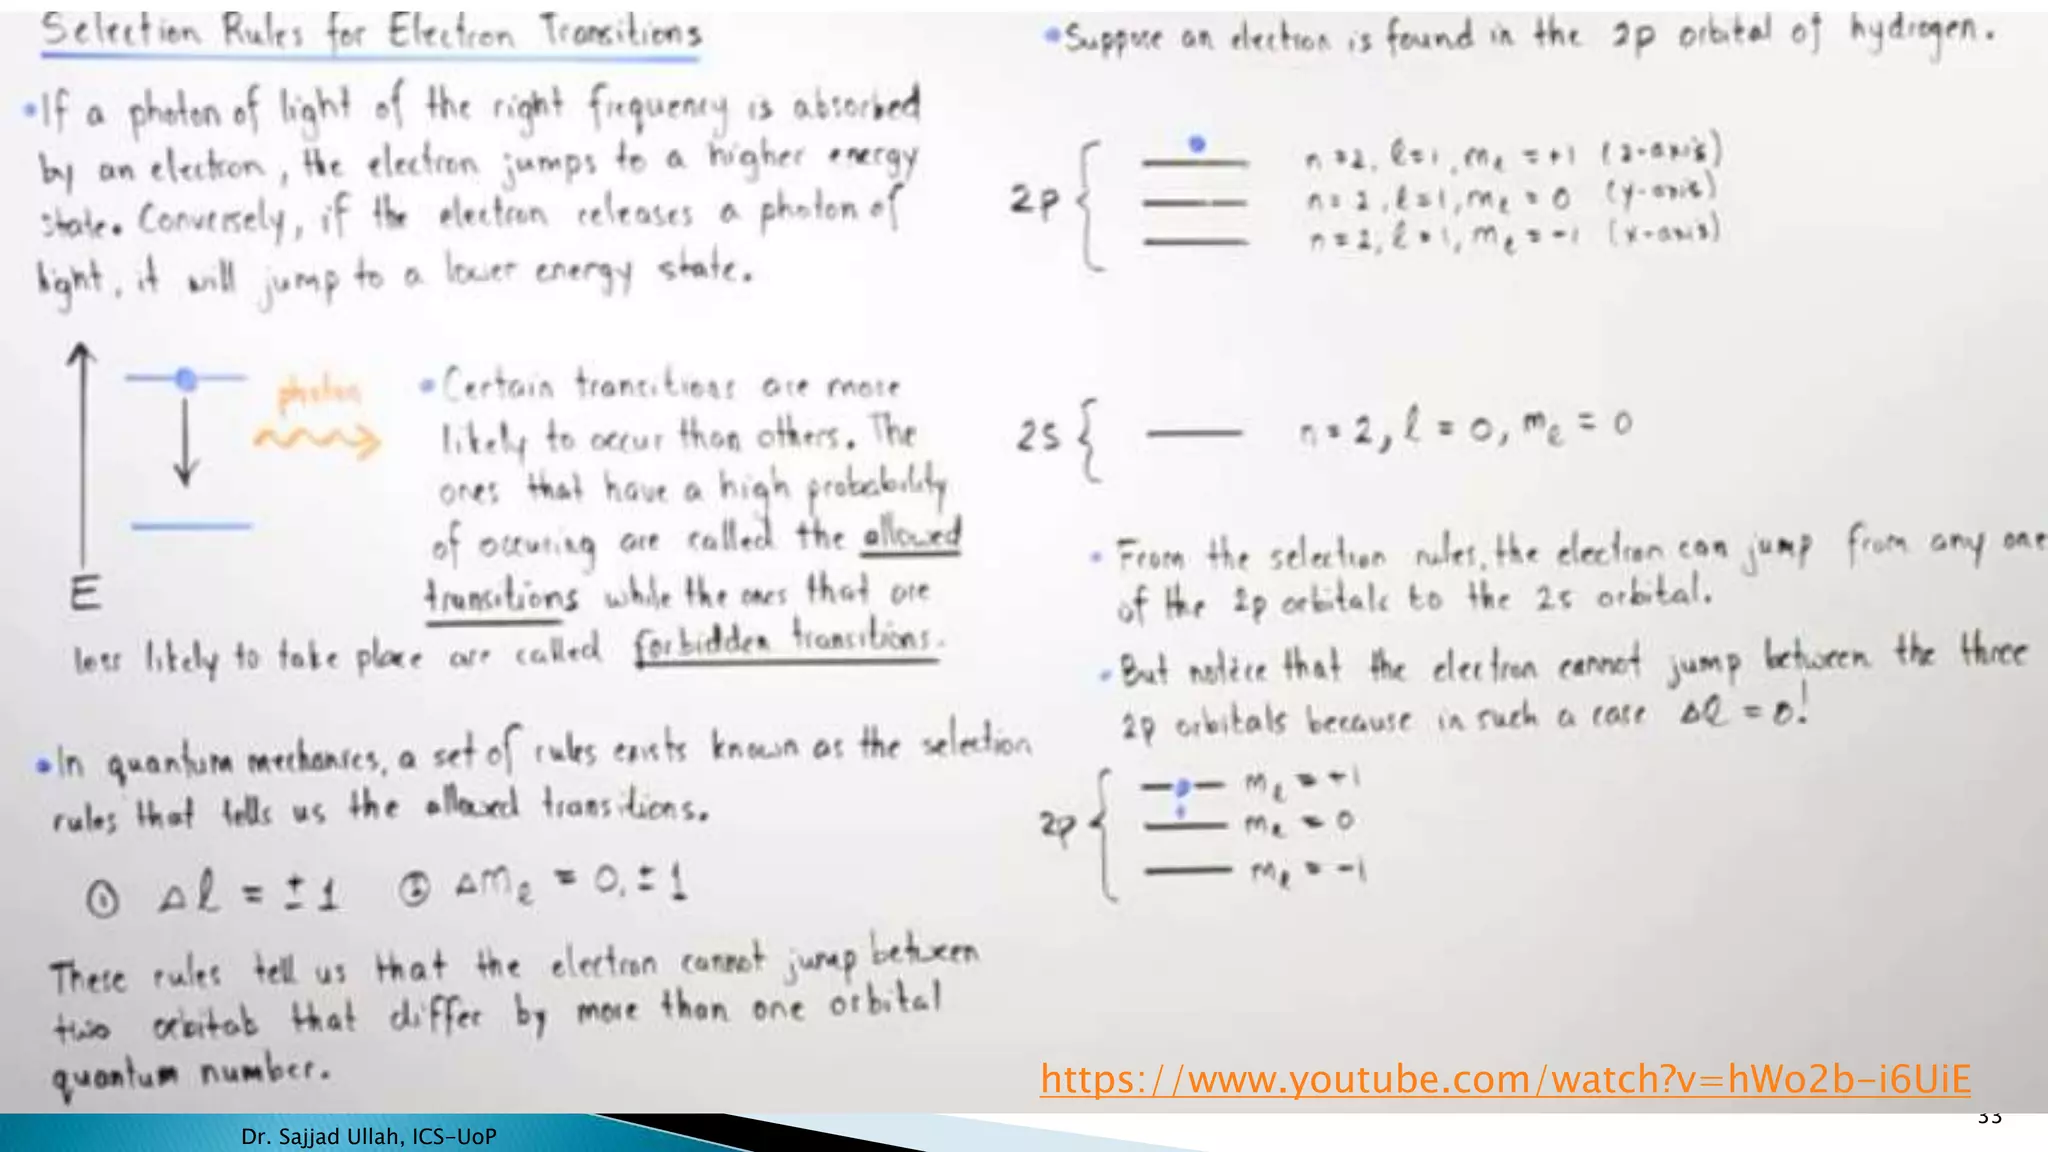 Selection Rules for Electron Transitions
•If a photon of light of the right frequency is absorbed
by an electron, the electron jumps to a higher energy
state. Conversely, if the electron releases a photon of
light, it will jump to a lower energy state.
photon
E
•Certain transitions are more
likely to occur than others. The
ones that have a high probability
of occuring are called the allowed
transitions while the ones that are
less likely to take place are called forbidden transitions.
•In quantum mechanics, a set of rules exists known as the selection
rules that tells us the allowed transitions.
① Δℓ = ±1 ② Δmℓ = 0, ±1
These rules tell us that the electron cannot jump between
two orbitals that differ by more than one orbital
quantum number.
•Suppose an electron is found in the 2p orbital of hydrogen.
2p { n=2, ℓ=1, mℓ = +1 (z-axis)
n=2, ℓ=1, mℓ = 0 (y-axis)
n=2, ℓ=1, mℓ = -1 (x-axis)
2s { n=2, ℓ=0, mℓ=0
• From the selection rules, the electron can jump from any one
of the 2p orbitals to the 2s orbital.
• But notice that the electron cannot jump between the three
2p orbitals because in such a case Δℓ = 0!
2p { mℓ = +1
mℓ = 0
mℓ = -1
https://www.youtube.com/watch?v=hWo2b-i6UiE
33
Dr. Sajjad Ullah, ICS-UoP